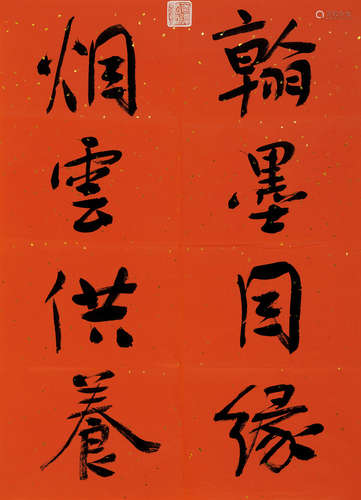 翰墨因缘
烟雲供養